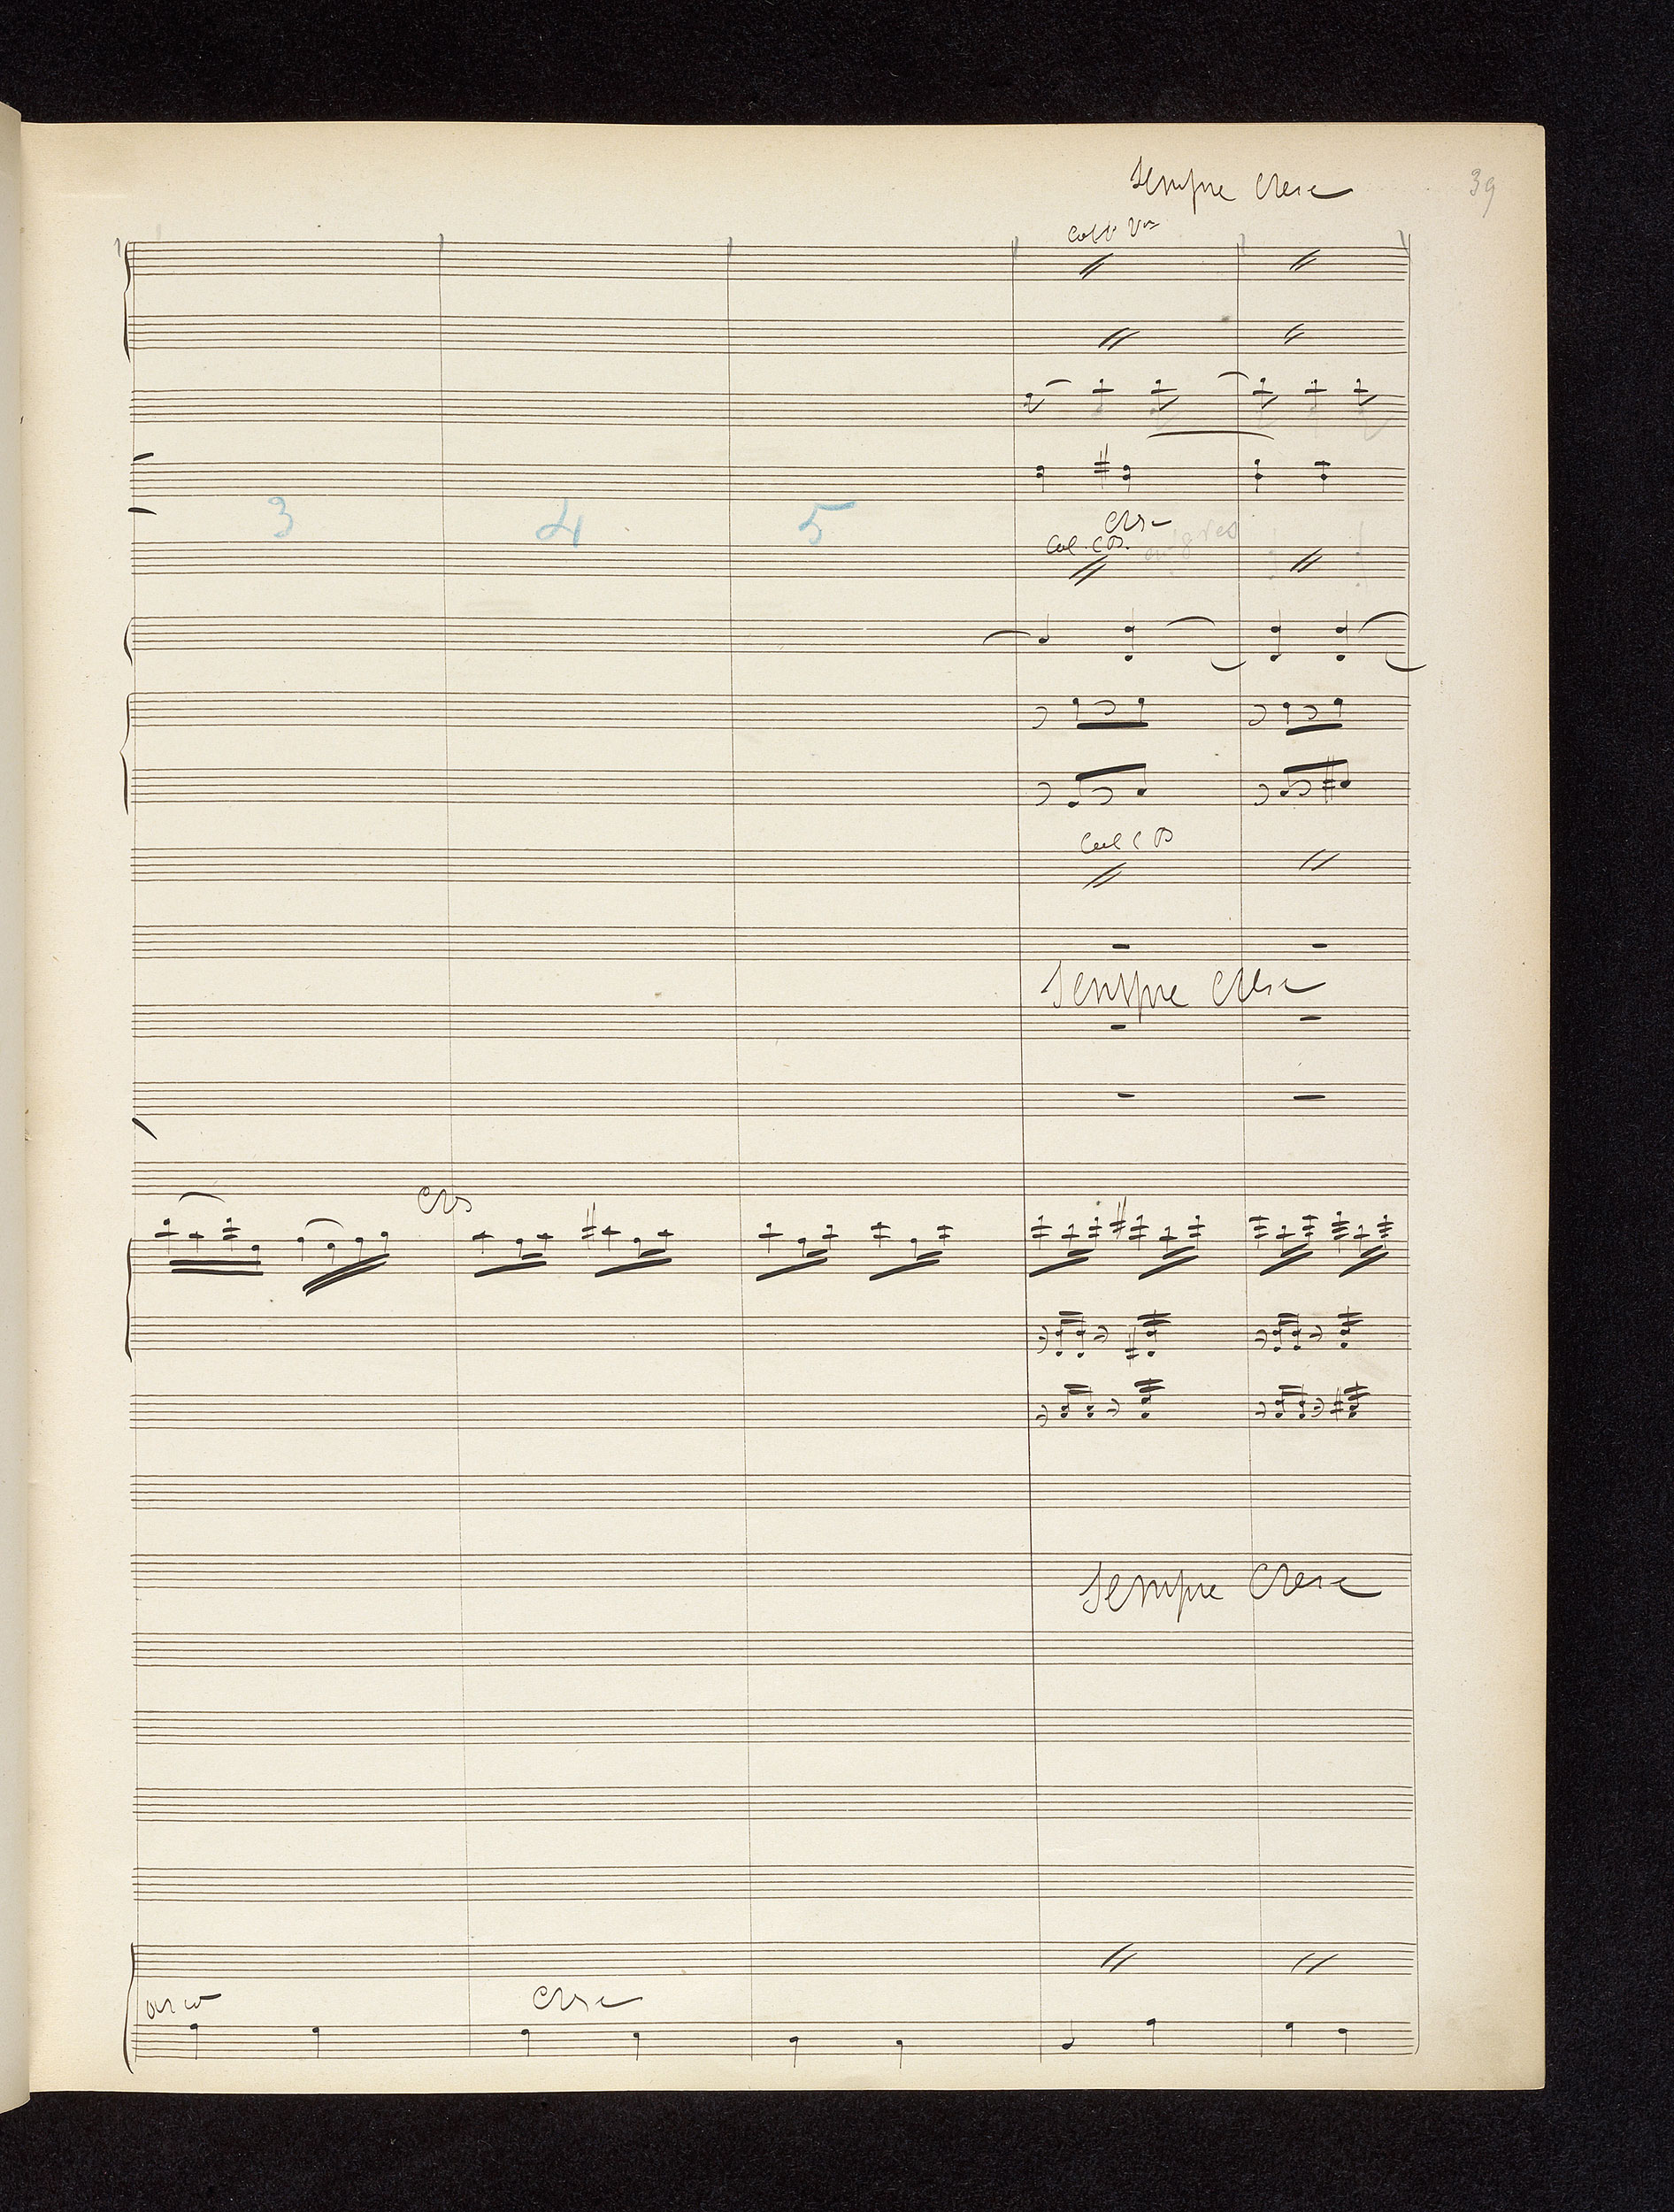 sempre cresc
39
col 1º Vni
3 4 5
cresc
Col. C B.
Col C B
sempre cresc
cres
sempre cresc
arco
cresc